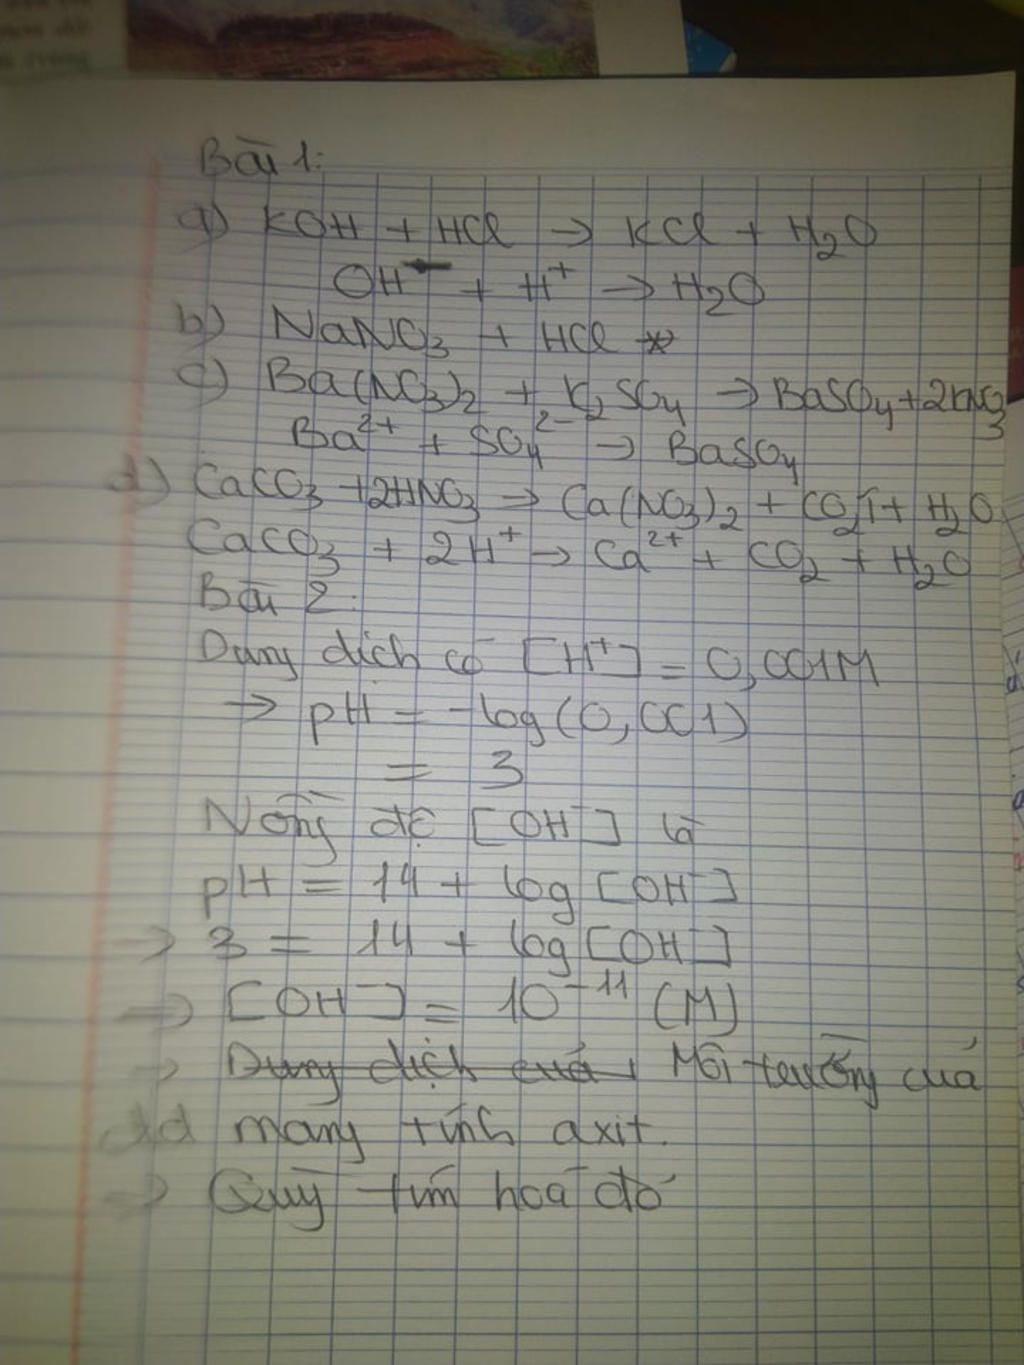 Bài 1:
a) KOH + HCl → KCl + H₂O
OH⁻ + H⁺ → H₂O
b) NaNO₃ + HCl
c) Ba(NO₃)₂ + K₂SO₄ → BaSO₄ + 2KNO₃
Ba²⁺ + SO₄²⁻ → BaSO₄
d) CaCO₃ + 2HNO₃ → Ca(NO₃)₂ + CO₂↑ + H₂O
CaCO₃ + 2H⁺ → Ca²⁺ + CO₂ + H₂O
Bài 2:
Dung dịch có [H⁺] = 0,001M
→ pH = -log(0,001)
= 3
Nồng độ [OH⁻] là
pH = 14 + log[OH⁻]
→ 3 = 14 + log[OH⁻]
→ [OH⁻] = 10⁻¹¹ (M)
→ Dung dịch của Môi trường của
dd mang tính axit.
→ Quỳ tím hoá đỏ